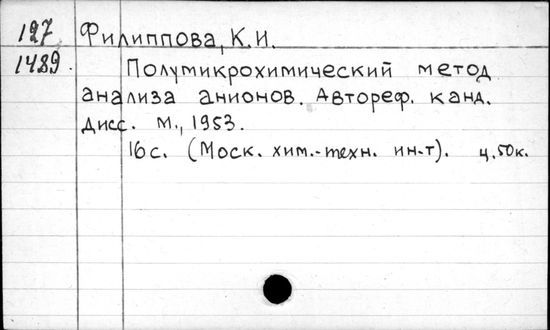 127 Филиппова, К.И.
1489. Полумикрохимический метод
анализа анионов. Автореф. канд.
дисс. М., 1953.
16 с. (Моск. хим.-техн. ин-т). ц. 50к.